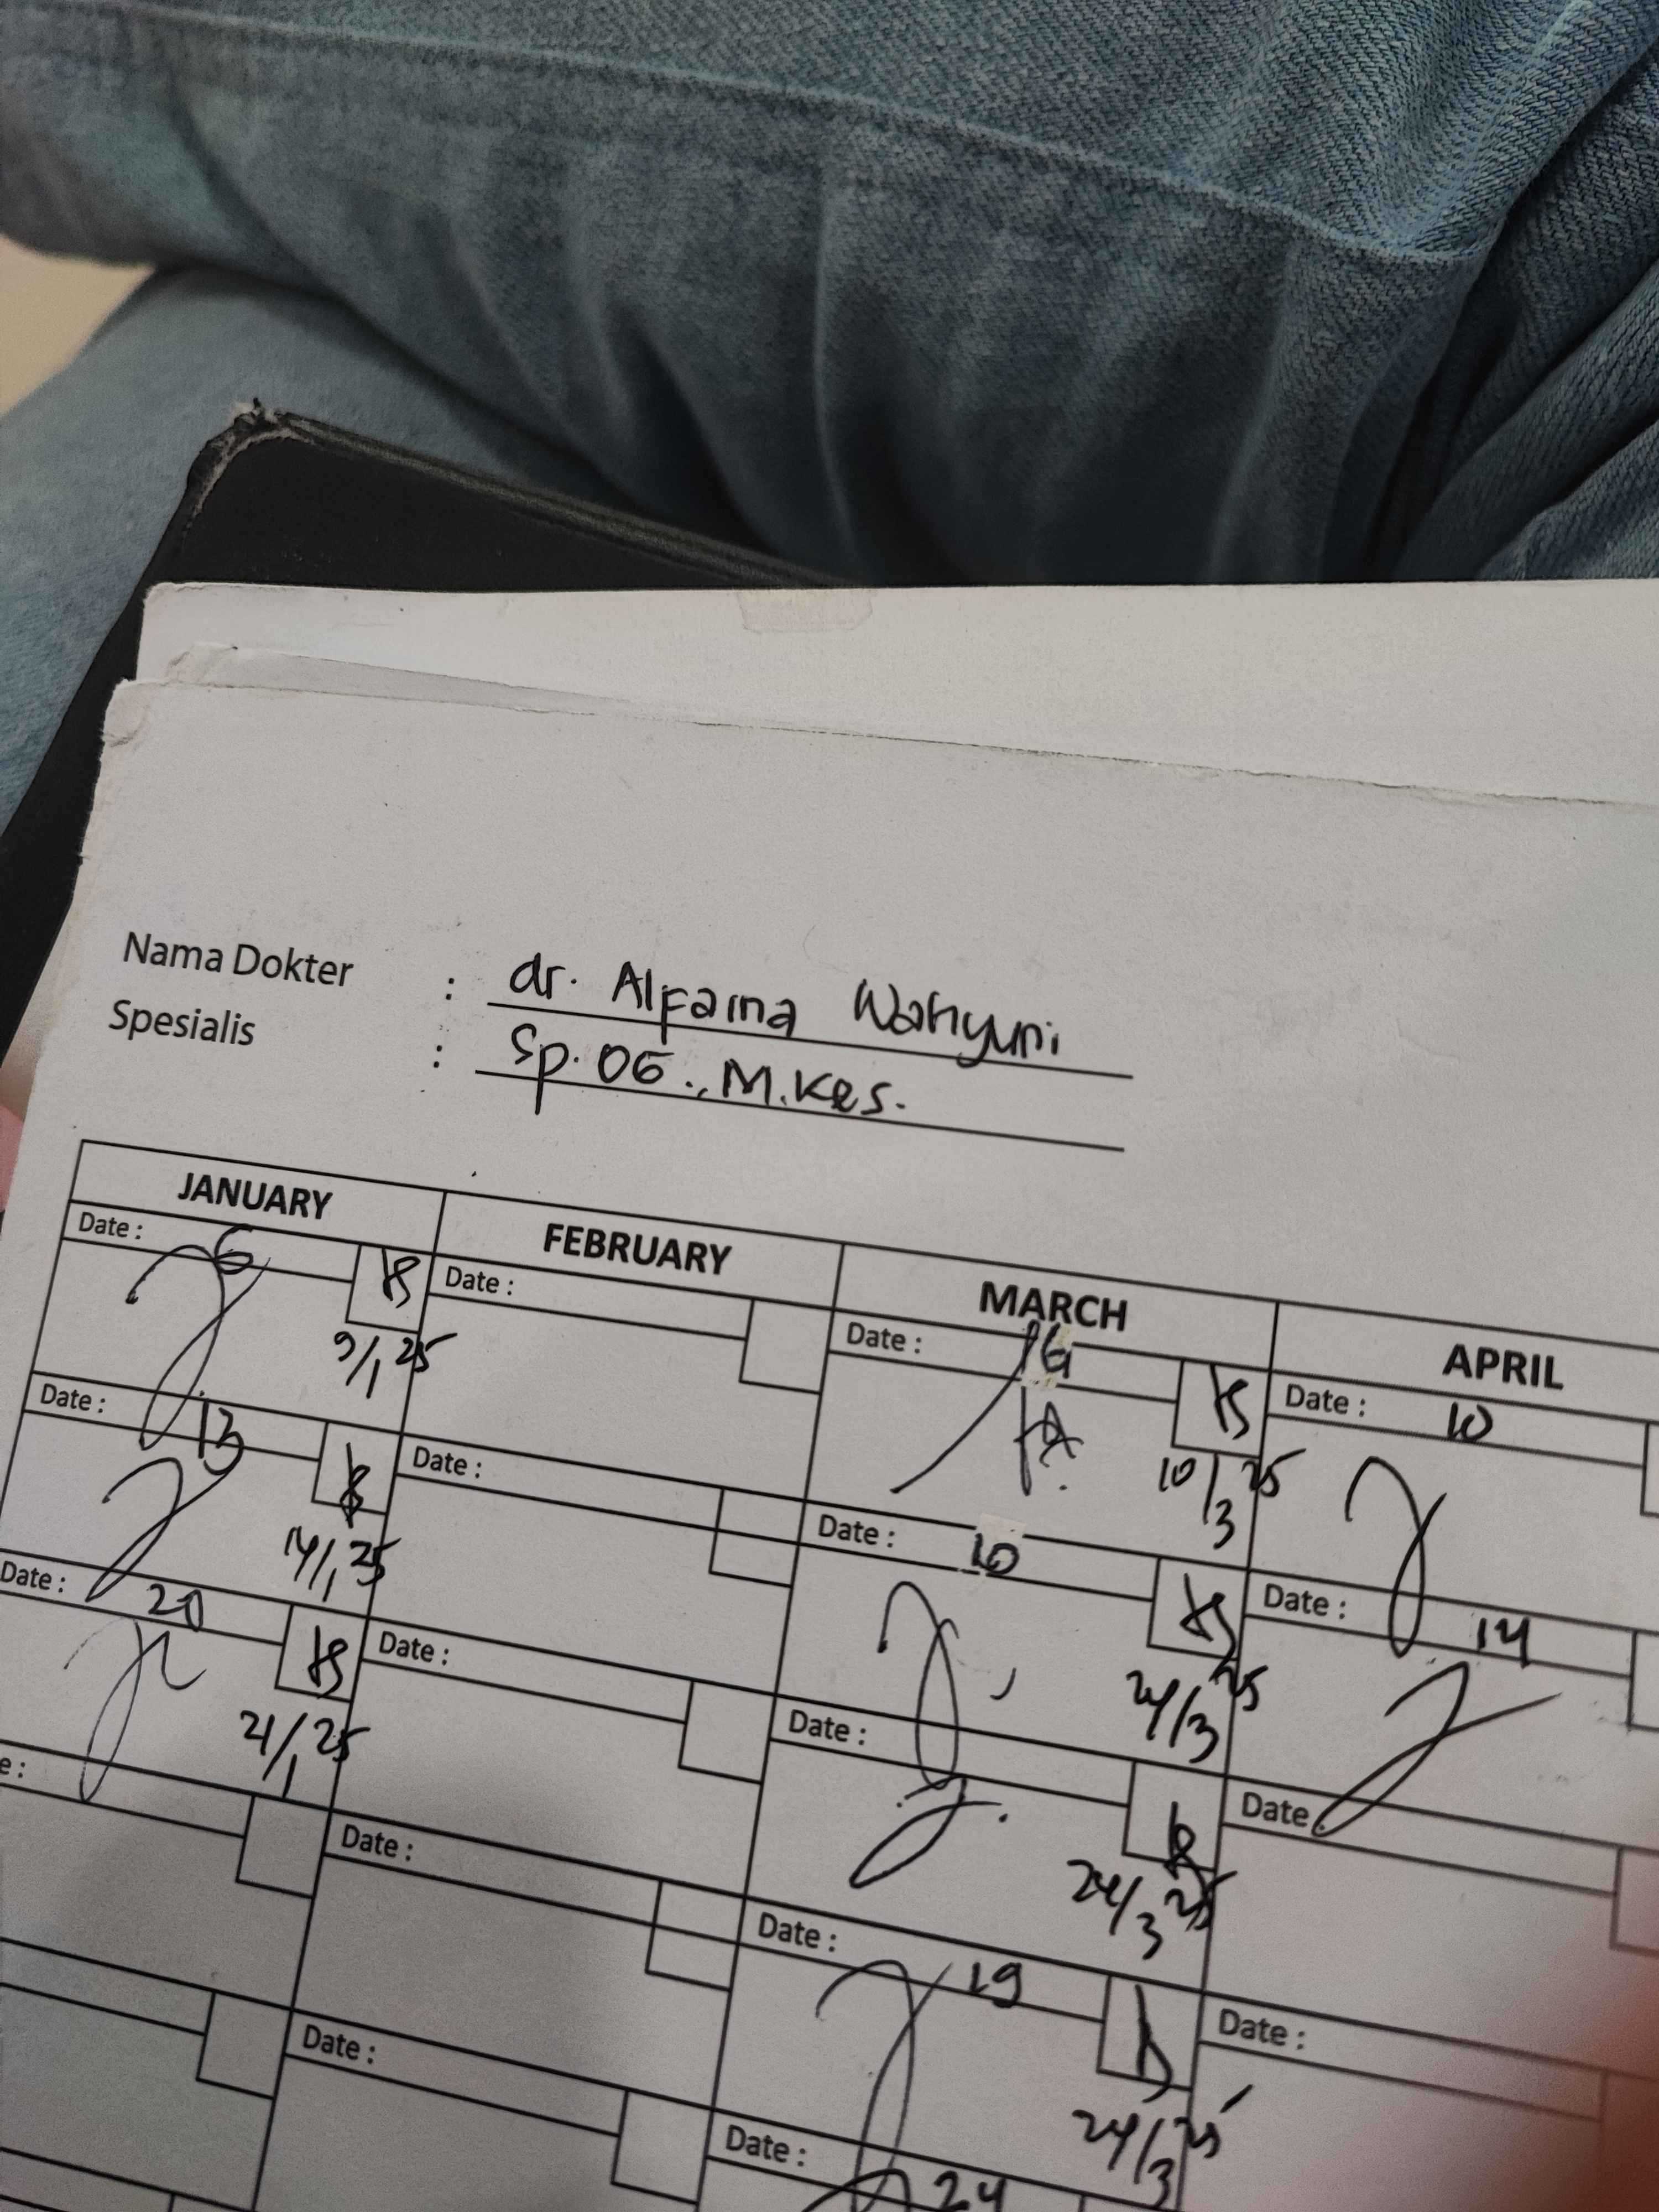 Nama Dokter : dr. Alfaina Wahyuni
Spesialis : Sp. OG., M.Kes.
JANUARY FEBRUARY MARCH APRIL
Date : 6
9/1 25
Date :
Date :
10/3 25
Date : 10
Date : 13
14/1 25
Date :
Date : 10
24/3 25
Date : 14
Date : 20
21/1 25
Date :
Date :
24/3 25
Date
e :
Date :
Date : 19
24/3 25
Date :
Date :
Date : 24